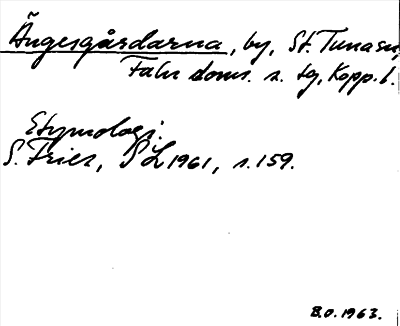 Ängesgårdarna, by, St. Tunasn,
Falu doms. s. tg, Kopp. l.
Etymologi.
S. Fries, SL 1961, s. 159.
B.O. 1963.